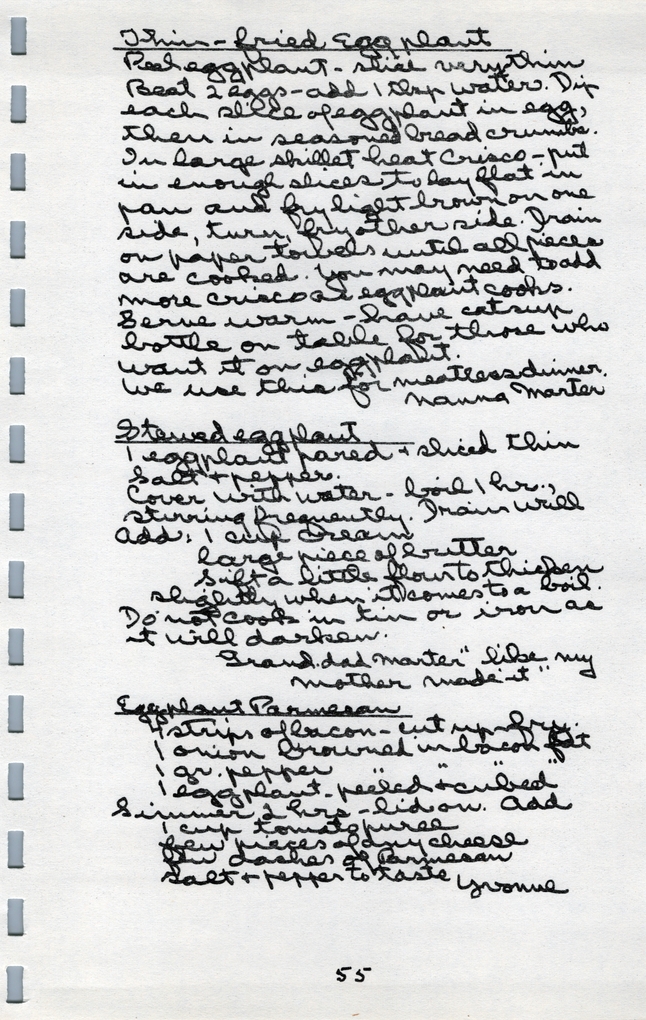 Thin-fried Eggplant
Peel eggplant - slice very thin
Beat 2 eggs - add 1 tbsp water. Dip
each slice of eggplant in egg,
then in seasoned bread crumbs.
In large skillet heat Crisco - put
in enough slices to lay flat in
pan and fry light brown on one
side, turn, fry other side. Drain
on paper towels until all pieces
are cooked. You may need to add
more crisco as eggplant cooks.
Serve warm - have catsup
bottle on table for those who
want it on eggplant.
We use this for meatless dinner.
Nanna Marter
Stewed eggplant
1 eggplant pared + sliced thin
Salt + pepper.
Cover with water - boil 1 hr.,
stirring frequently. Drain well
Add: 1 cup cream
large piece of butter
Sift a little flour to thicken
slightly when it comes to a boil.
Do not cook in tin or iron as
it will darken.
Grand.dad Marter "like my
mother made it"
Eggplant Parmesan
4 strips of bacon - cut up - fry.
1 onion browned in bacon fat
1 gr. pepper " " " "
1 eggplant - peeled + cubed
Simmer 2 hrs - lid on. Add
1 cup tomato puree
few pieces of any cheese
few dashes of Parmesan
Salt + pepper to taste Yvonne
55